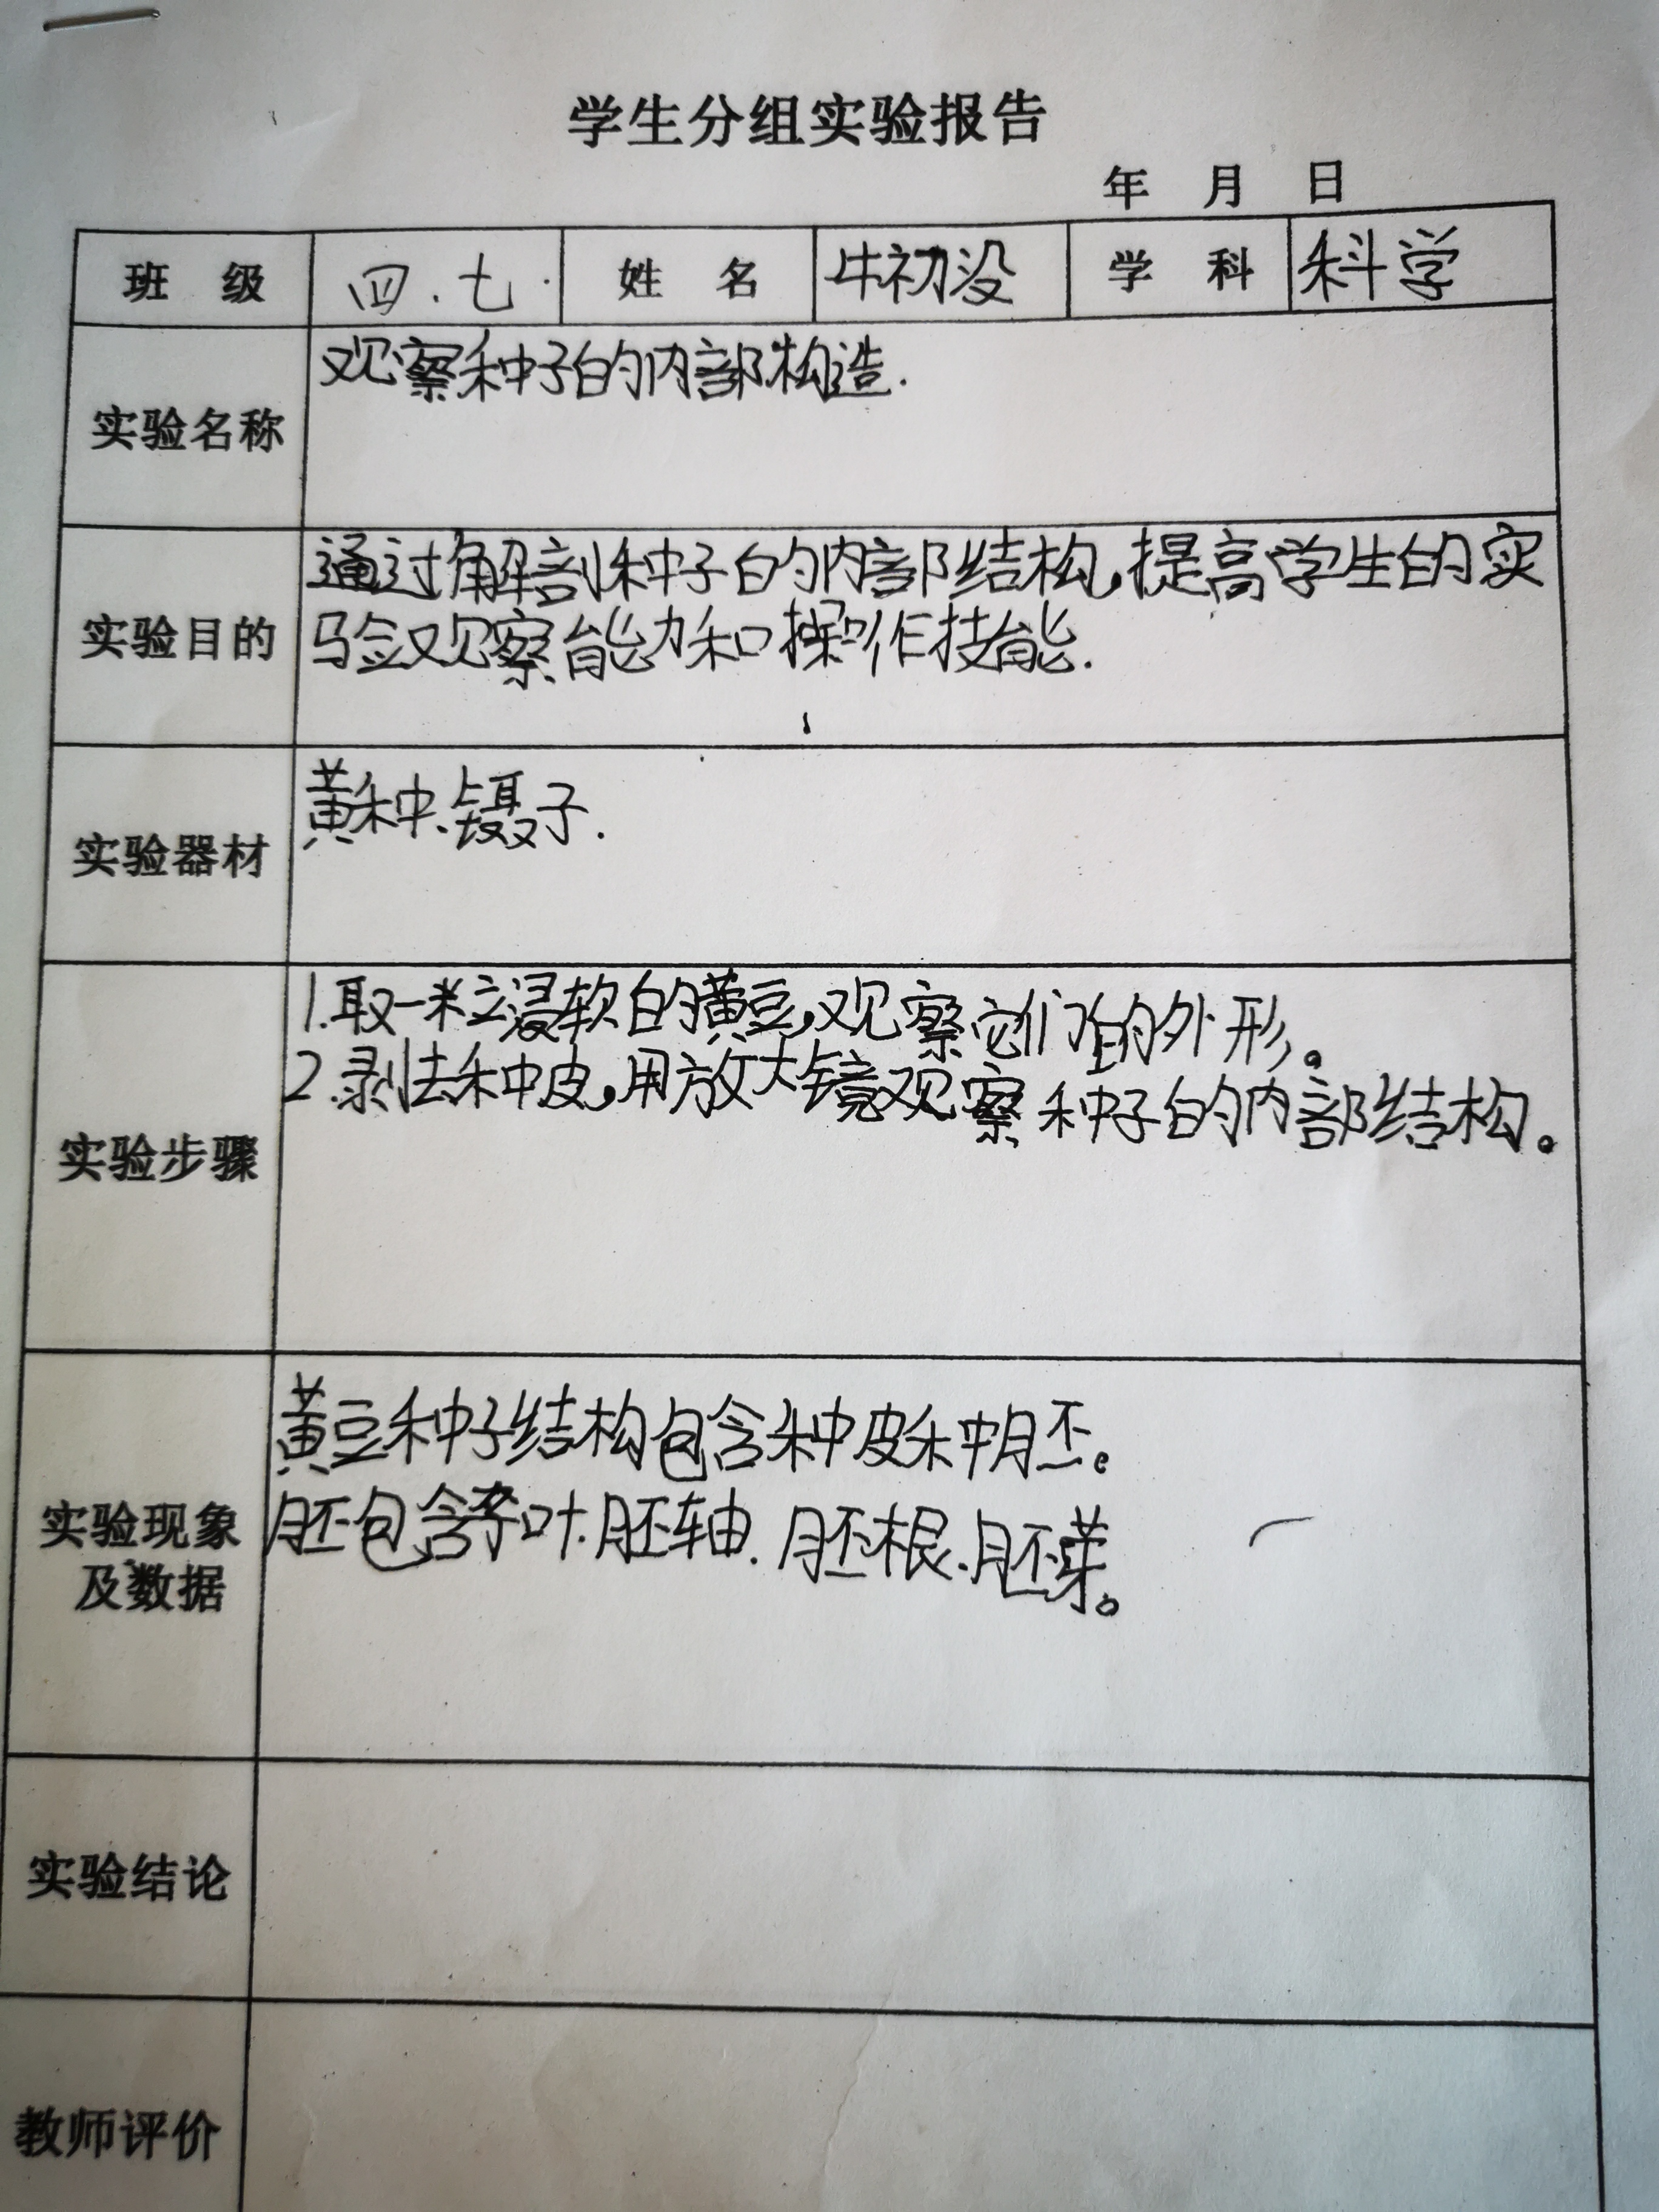 学生分组实验报告
年 月 日
班 级 四.七. 姓 名 牛初没 学 科 科学
实验名称 观察种子的内部构造.
实验目的 通过解剖种子的内部结构,提高学生的实
验观察能力和操作技能.
实验器材 黄种、镊子.
实验步骤 1.取一粒浸软的黄豆,观察它们的外形。
2.剥去种皮,用放大镜观察种子的内部结构。
实验现象
及数据
黄豆种子结构包含种皮种胚。
胚包含子叶.胚轴.胚根.胚芽。
实验结论
教师评价